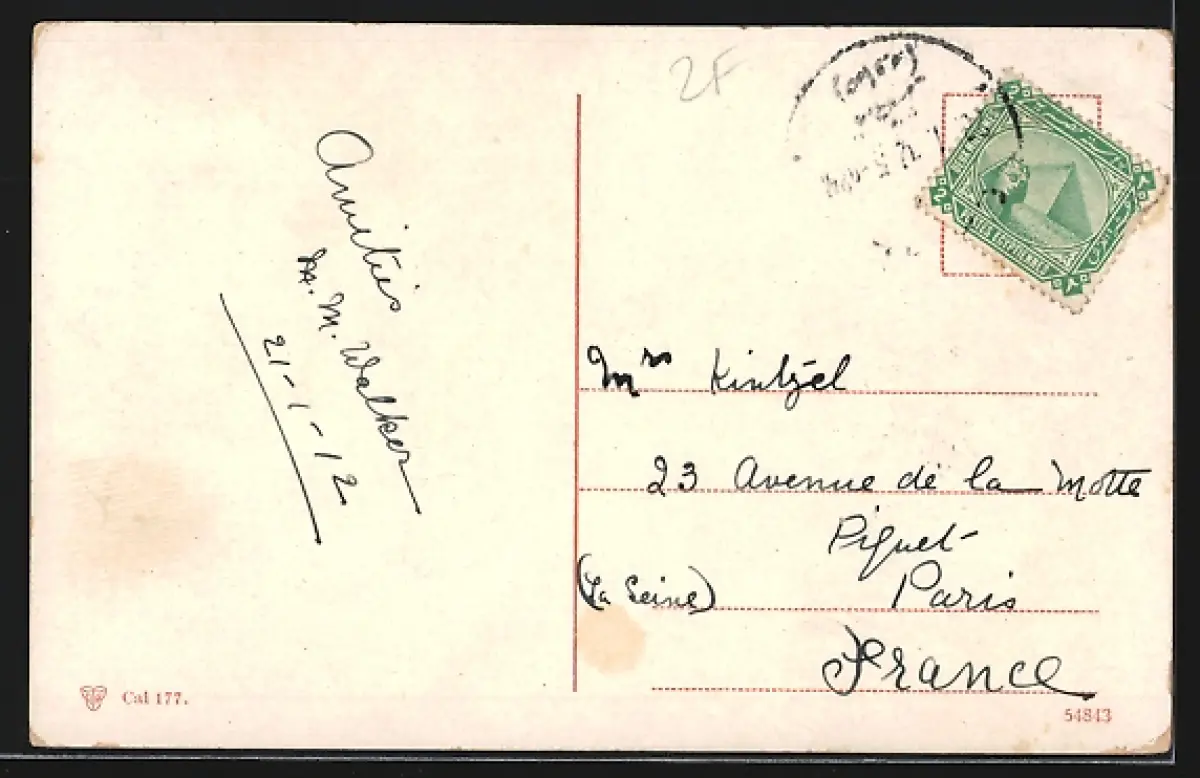 2F
Amitiés
M. M. Walker
21-1-12
Mrs Kintzel
23 Avenue de la Motte
Piquet
(La Seine) Paris
France
Cai 177.
54843
POSTES EGYPTIENNES